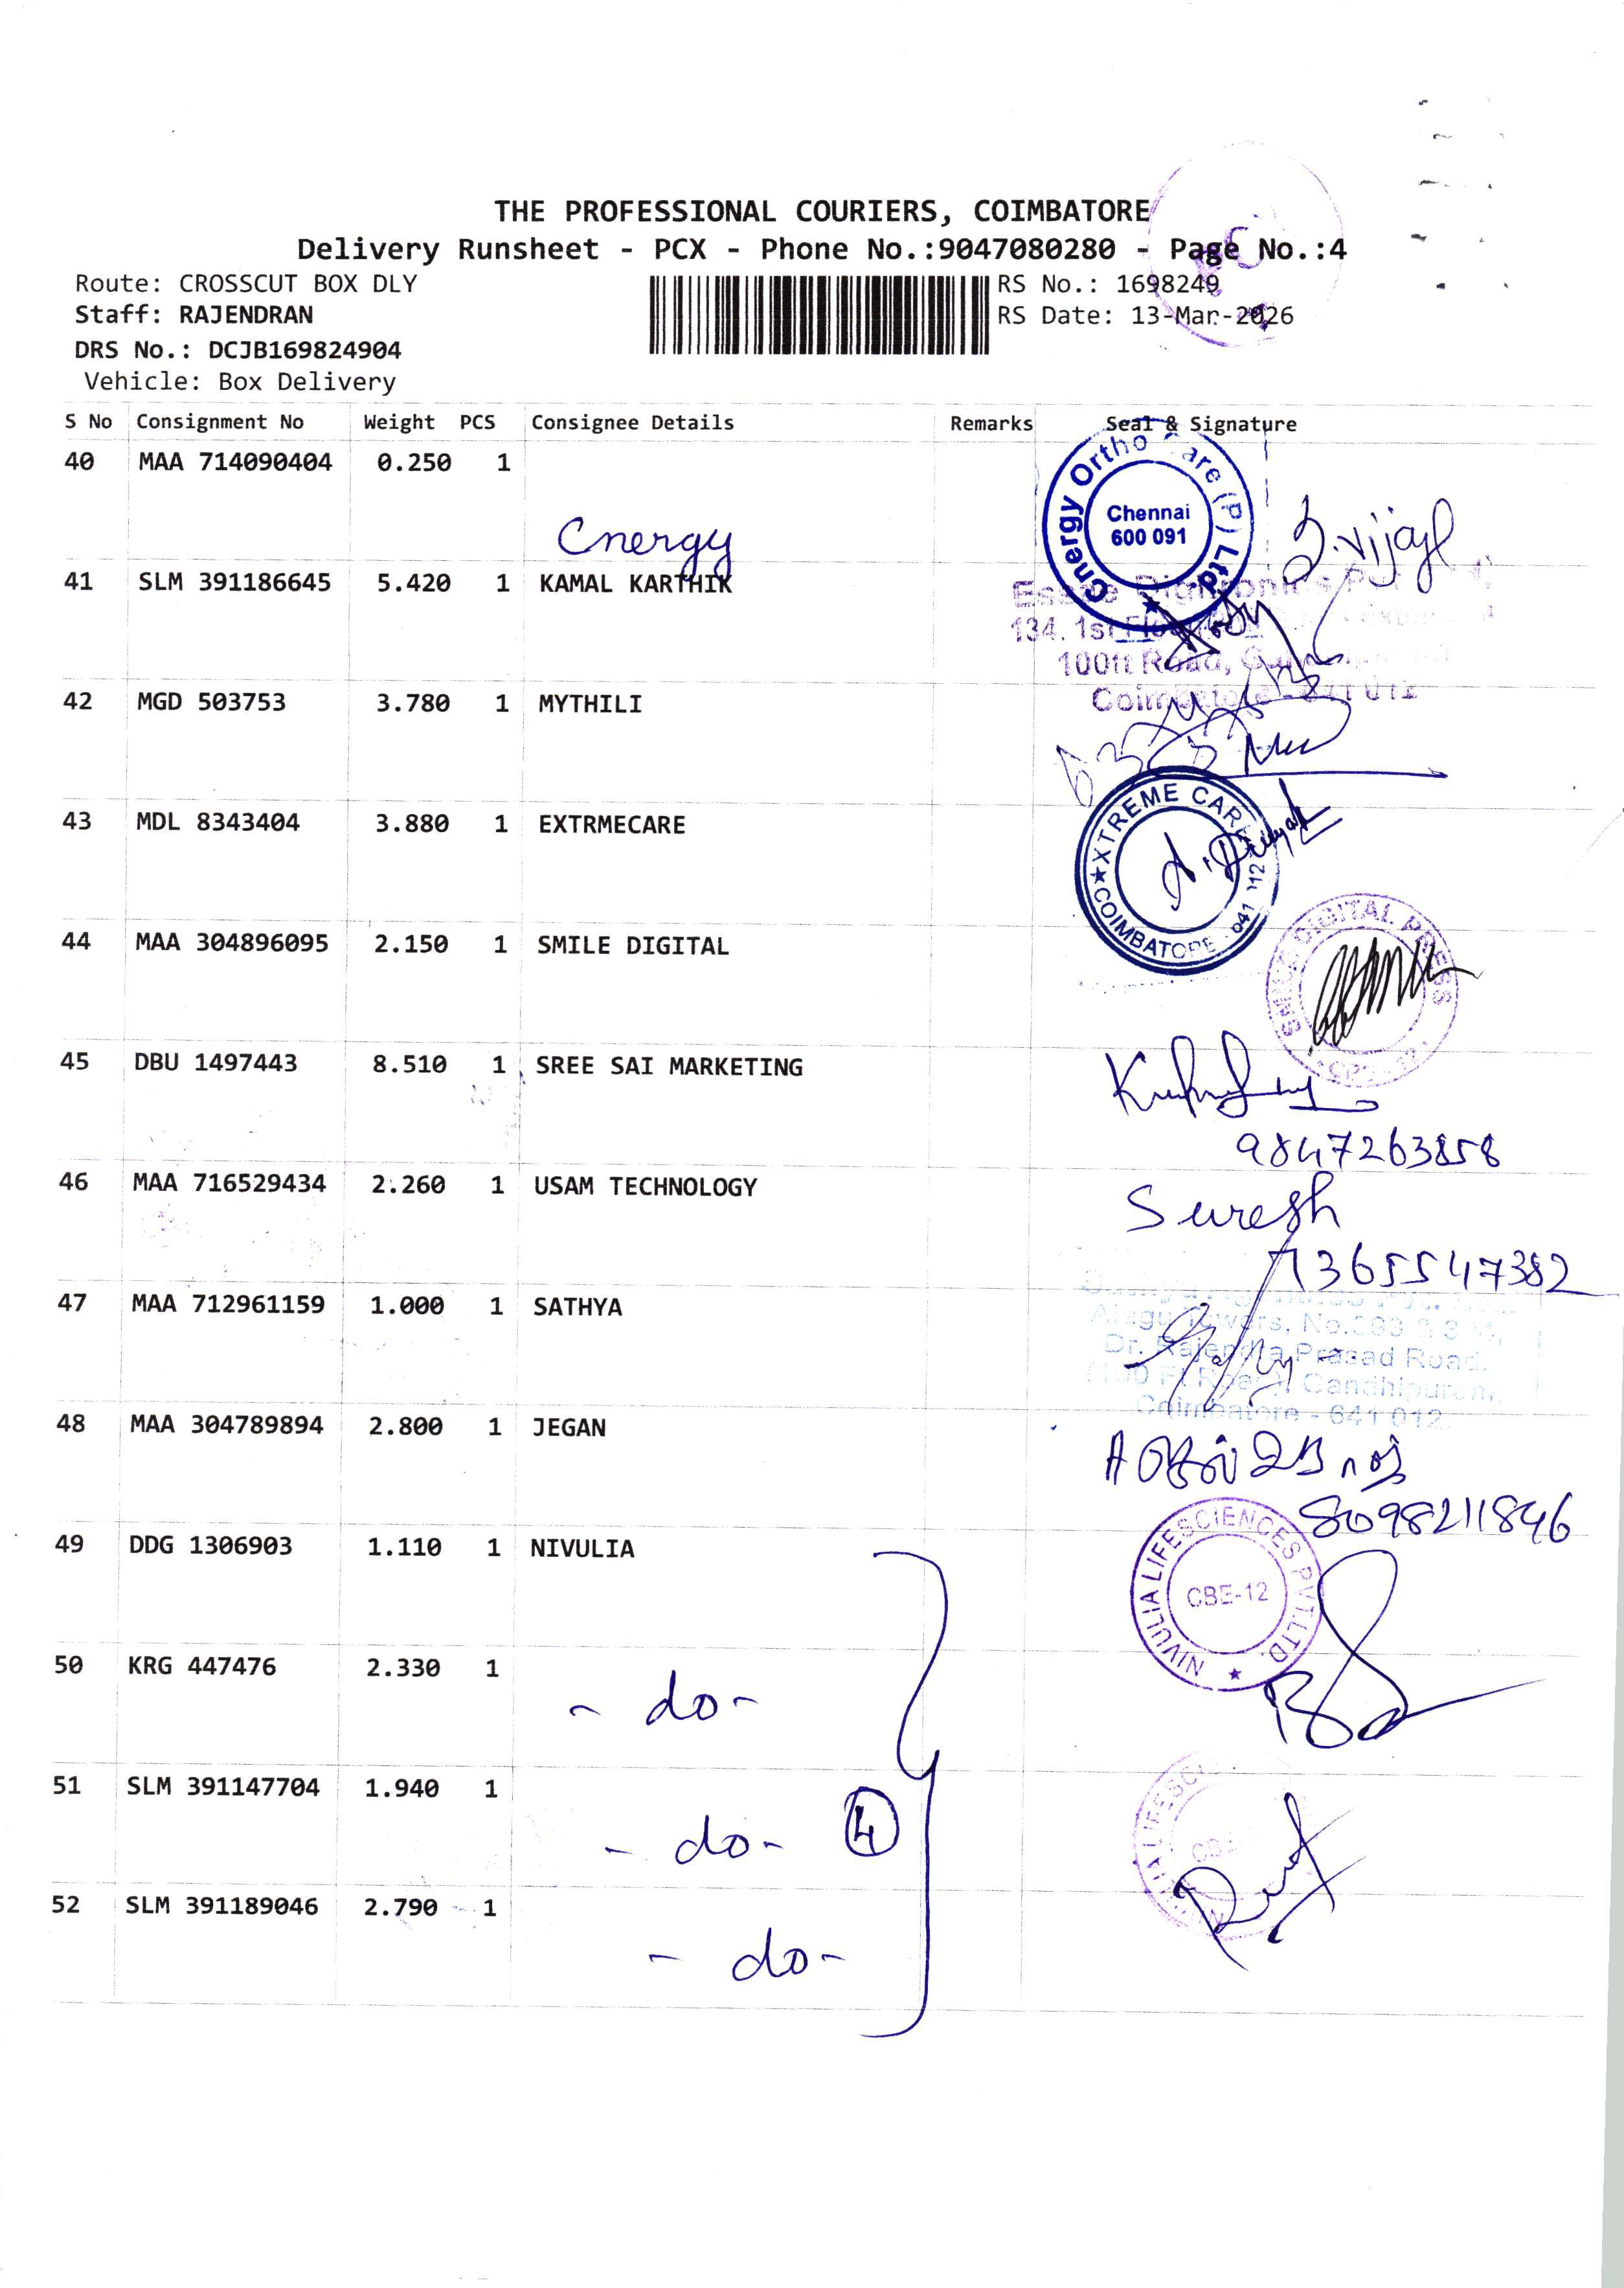 THE PROFESSIONAL COURIERS, COIMBATORE
Delivery Runsheet - PCX - Phone No.:9047080280 - Page No.:4
Route: CROSSCUT BOX DLY
RS No.: 1698249
Staff: RAJENDRAN
RS Date: 13-Mar-2026
DRS No.: DCJB169824904
Vehicle: Box Delivery
S No Consignment No Weight PCS Consignee Details Remarks Seal & Signature
40 MAA 714090404 0.250 1
Cnergy
Cnergy Ortho Care (P) Ltd.
Chennai
600 091
41 SLM 391186645 5.420 1 KAMAL KARTHIK
134, 1st Floor
100ft Road,
Coimbatore - 641 012
42 MGD 503753 3.780 1 MYTHILI
43 MDL 8343404 3.880 1 EXTRMECARE
XTREME CARE
COIMBATORE - 641 112
44 MAA 304896095 2.150 1 SMILE DIGITAL
DIGITAL PRESS
45 DBU 1497443 8.510 1 SREE SAI MARKETING
9847263858
46 MAA 716529434 2.260 1 USAM TECHNOLOGY
Suresh
7365547382
47 MAA 712961159 1.000 1 SATHYA
Alagu Towers,
Dr. Rajendra Prasad Road,
(100 Ft Road), Gandhipuram,
Coimbatore - 641 012
48 MAA 304789894 2.800 1 JEGAN
8098211846
49 DDG 1306903 1.110 1 NIVULIA
NIVULIA LIFESCIENCES PVT.LTD.
CBE-12
50 KRG 447476 2.330 1
- do -
51 SLM 391147704 1.940 1
- do - 4
52 SLM 391189046 2.790 1
- do -